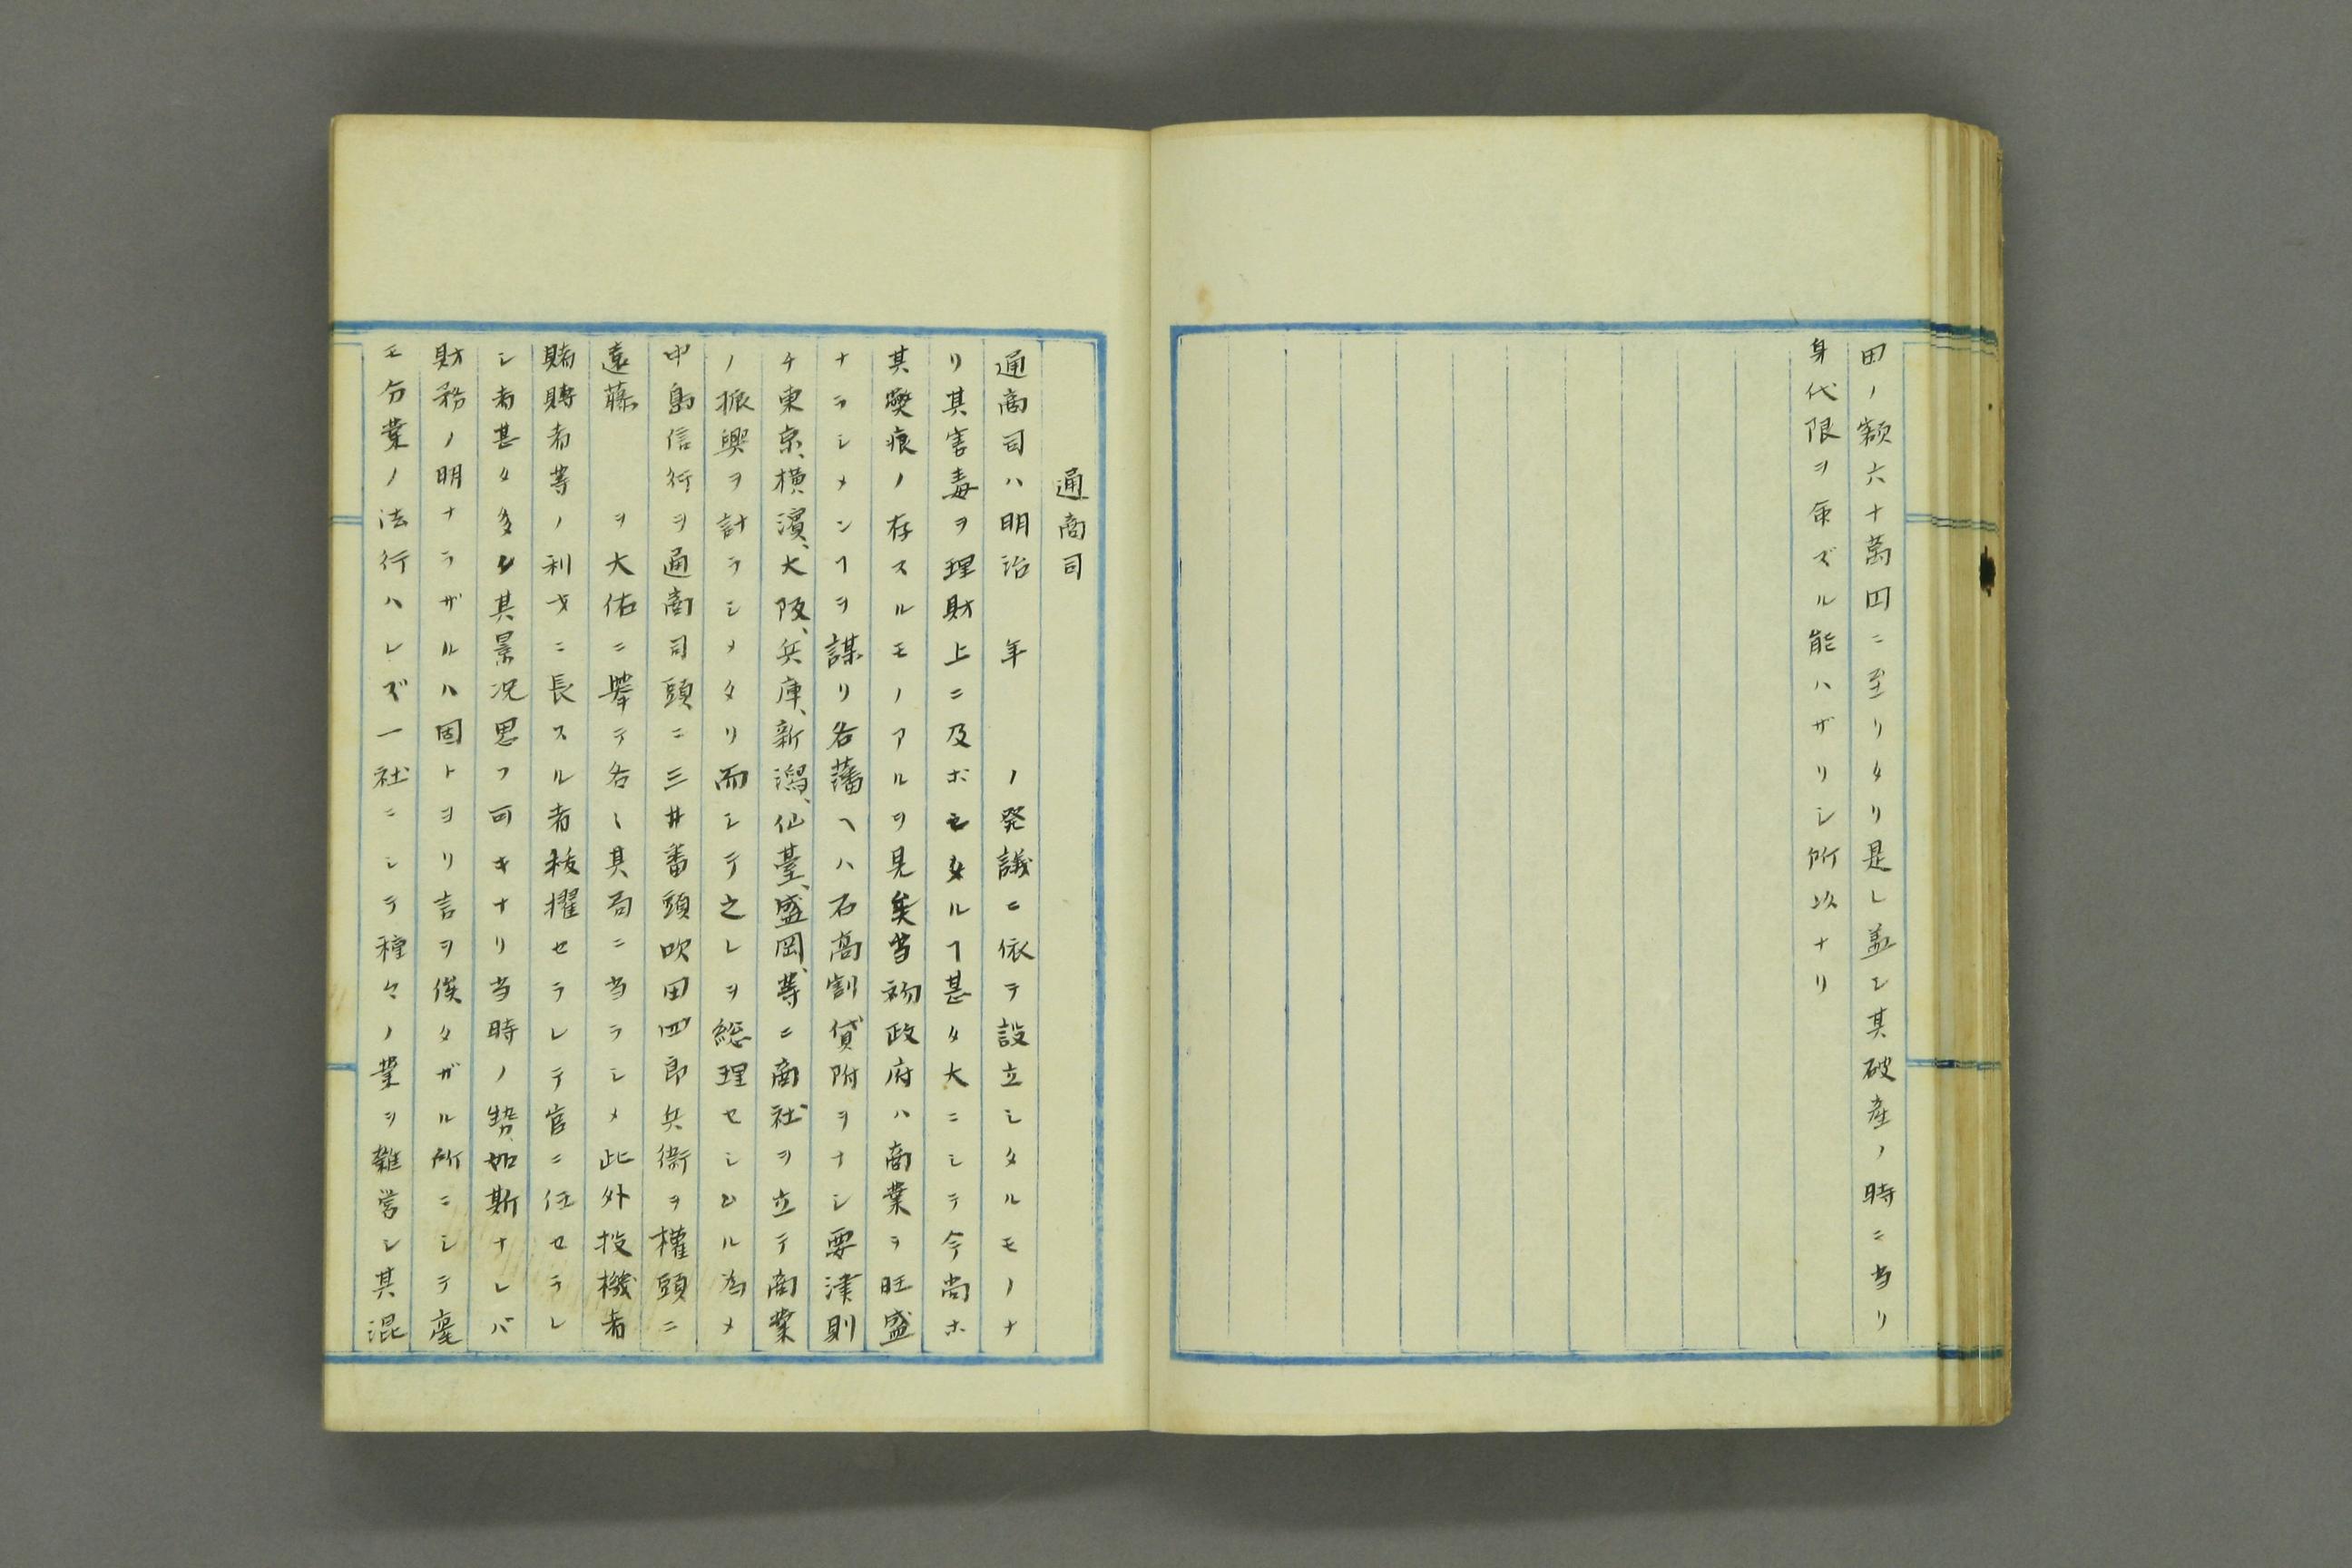 田ノ額六十萬円ニ至リタリ是レ盖シ其破産ノ時ニ当リ
身代限ヲ命ズル能ハザリシ所以ナリ
通商司
通商司ハ明治　年　　ノ発議ニ依テ設立シタルモノナ
リ其害毒ヲ理財上ニ及ボセタルヿ甚タ大ニシテ今尚ホ
其獘痕ノ存スルモノアルヲ見矣当初政府ハ商業ヲ旺盛
ナラシメンヿヲ謀リ各藩ヘハ石高割貸附ヲナシ要津則
チ東京、横濱、大阪、兵庫、新潟、仙臺、盛岡、等ニ商社ヲ立テ商業
ノ振興ヲ計ラシメタリ而シテ之レヲ総理セシムル為メ
中島信行ヲ通商司頭ニ三井番頭吹田四郎兵衛ヲ權頭ニ
遠藤　　ヲ大佑ニ擧テ各〻其局ニ当ラシメ此外投機者
賭賻者等ノ利才ニ長スル者抜擢セラレテ官ニ任セラレ
シ者甚タ多シ其景况思フ可キナリ当時ノ勢、如斯ナレバ
財務ノ明ナラザルハ固トヨリ言ヲ俟タザル所ニシテ産
モ分業ノ法行ハレズ一社ニシテ種々ノ業ヲ雜営シ其混